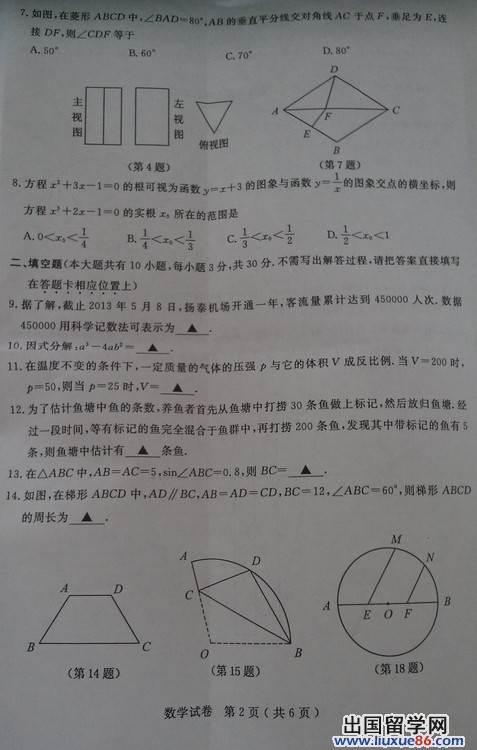 7. 如图,在菱形 ABCD 中,∠BAD=80°,AB 的垂直平分线交对角线 AC 于点 F,垂足为 E,连
接 DF,则∠CDF 等于
A. 50° B. 60° C. 70° D. 80°
主视图 左视图 俯视图
A B C D E F
(第 4 题) (第 7 题)
8. 方程 x²+3x-1=0 的根可视为函数 y=x+3 的图象与函数 y=1/x 的图象交点的横坐标,则
方程 x³+2x-1=0 的实根 x₀ 所在的范围是
A. 0<x₀<1/4 B. 1/4<x₀<1/3 C. 1/3<x₀<1/2 D. 1/2<x₀<1
二、填空题(本大题共有 10 小题,每小题 3 分,共 30 分.不需写出解答过程,请把答案直接填写
在答题卡相应位置上)
9. 据了解,截止 2013 年 5 月 8 日,扬泰机场开通一年,客流量累计达到 450000 人次.数据
450000 用科学记数法可表示为 ▲ .
10. 因式分解:a³-4ab²= ▲ .
11. 在温度不变的条件下,一定质量的气体的压强 p 与它的体积 V 成反比例.当 V=200 时,
p=50,则当 p=25 时,V= ▲ .
12. 为了估计鱼塘中鱼的条数,养鱼者首先从鱼塘中打捞 30 条鱼做上标记,然后放归鱼塘.经
过一段时间,等有标记的鱼完全混合于鱼群中,再打捞 200 条鱼,发现其中带标记的鱼有 5
条,则鱼塘中估计有 ▲ 条鱼.
13. 在△ABC 中,AB=AC=5,sin∠ABC=0.8,则 BC= ▲ .
14. 如图,在梯形 ABCD 中,AD∥BC,AB=AD=CD,BC=12,∠ABC=60°,则梯形 ABCD
的周长为 ▲ .
A D B C
A D C O B
M N A E O F B
(第 14 题) (第 15 题) (第 18 题)
数学试卷 第 2 页(共 6 页)
出国留学网
www.liuxue86.com